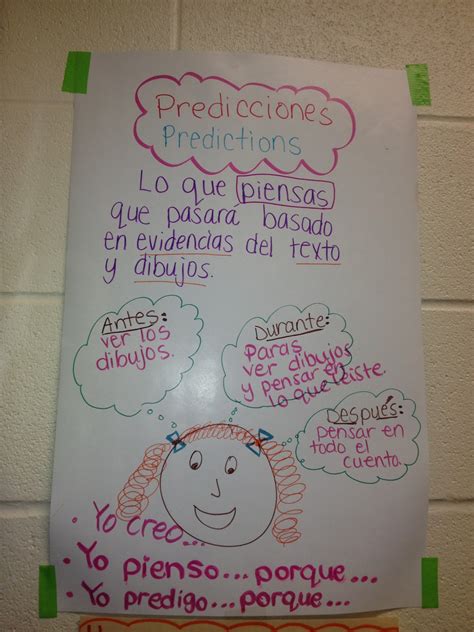 Predicciones
Predictions
Lo que piensas
que pasará basado
en evidencias del texto
y dibujos.
Antes:
ver los
dibujos.
Durante:
Paras
ver dibujos
y pensar en
lo que leiste.
Después:
Pensar en
todo el
cuento.
• Yo creo...
• Yo pienso... porque...
• Yo predigo... porque...